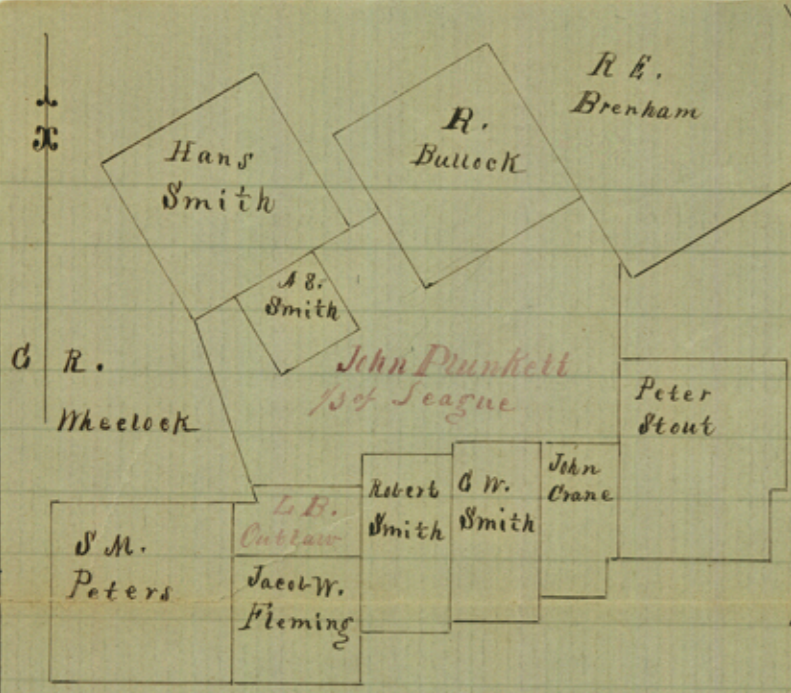 R E.
Brenham
R.
Bullock
Hans
Smith
A S.
Smith
G R.
Wheelock
John Plunkett
1/3 of League
Peter
Stout
Robert
Smith
G W.
Smith
John
Crane
L B.
Outlaw
S M.
Peters
Jacob W.
Fleming